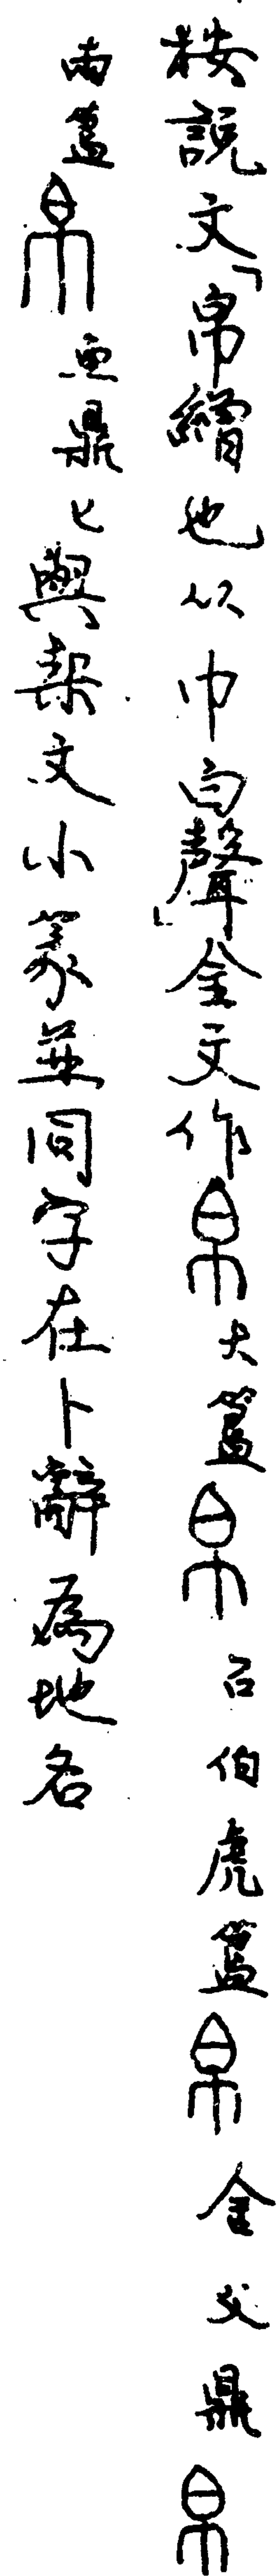 按說文「帛繒也从巾白聲」金文作帛大簋帛召伯虎簋帛金父鼎帛
兩簋帛亞鼎匕與栔文小篆並同字在卜辭為地名